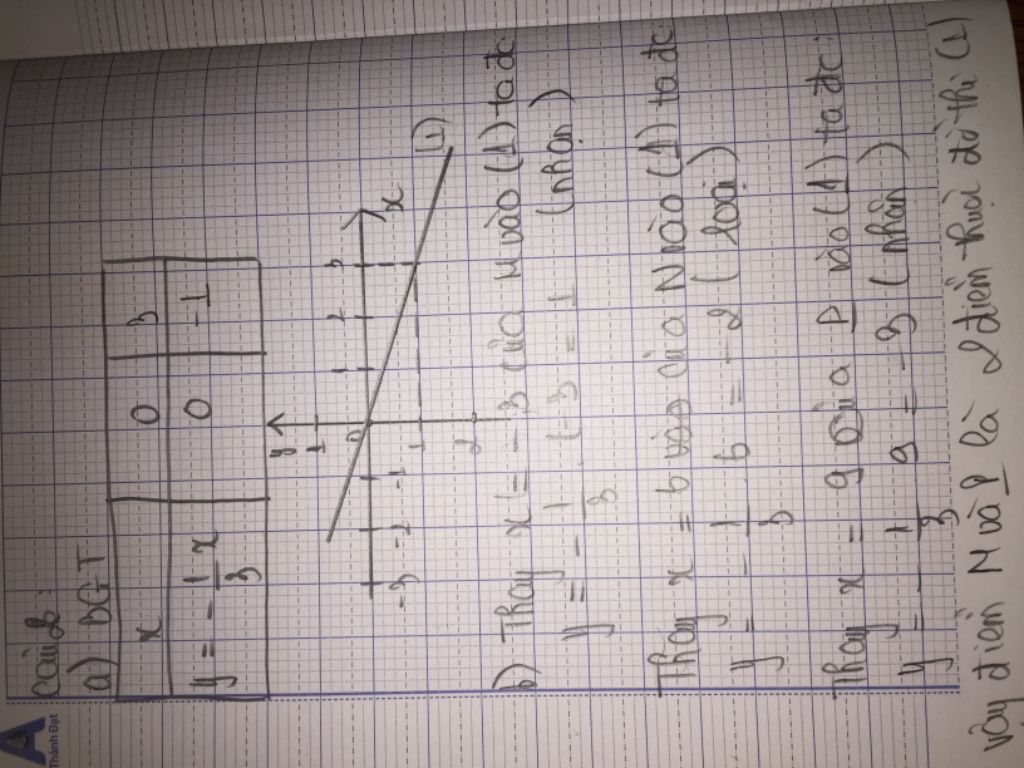 A
Thành Đạt
Bài 2:
a) BGT
x 0 3
y = -1/3 x 0 -1
y
1
-3 -2 -1 0 1 2 3 x
-1
-2
(1)
b) Thay x = -3 của M vào (1) ta đc
y = -1/3 (-3 = 1 (nhận)
Thay x = 6 vào của N vào (1) ta đc
y = -1/3 6 = -2 (loại)
Thay x = 9 của P vào (1) ta đc:
y = -1/3 9 = -3 (nhận)
vậy điểm M và P là 2 điểm thuộc đồ thị (1)